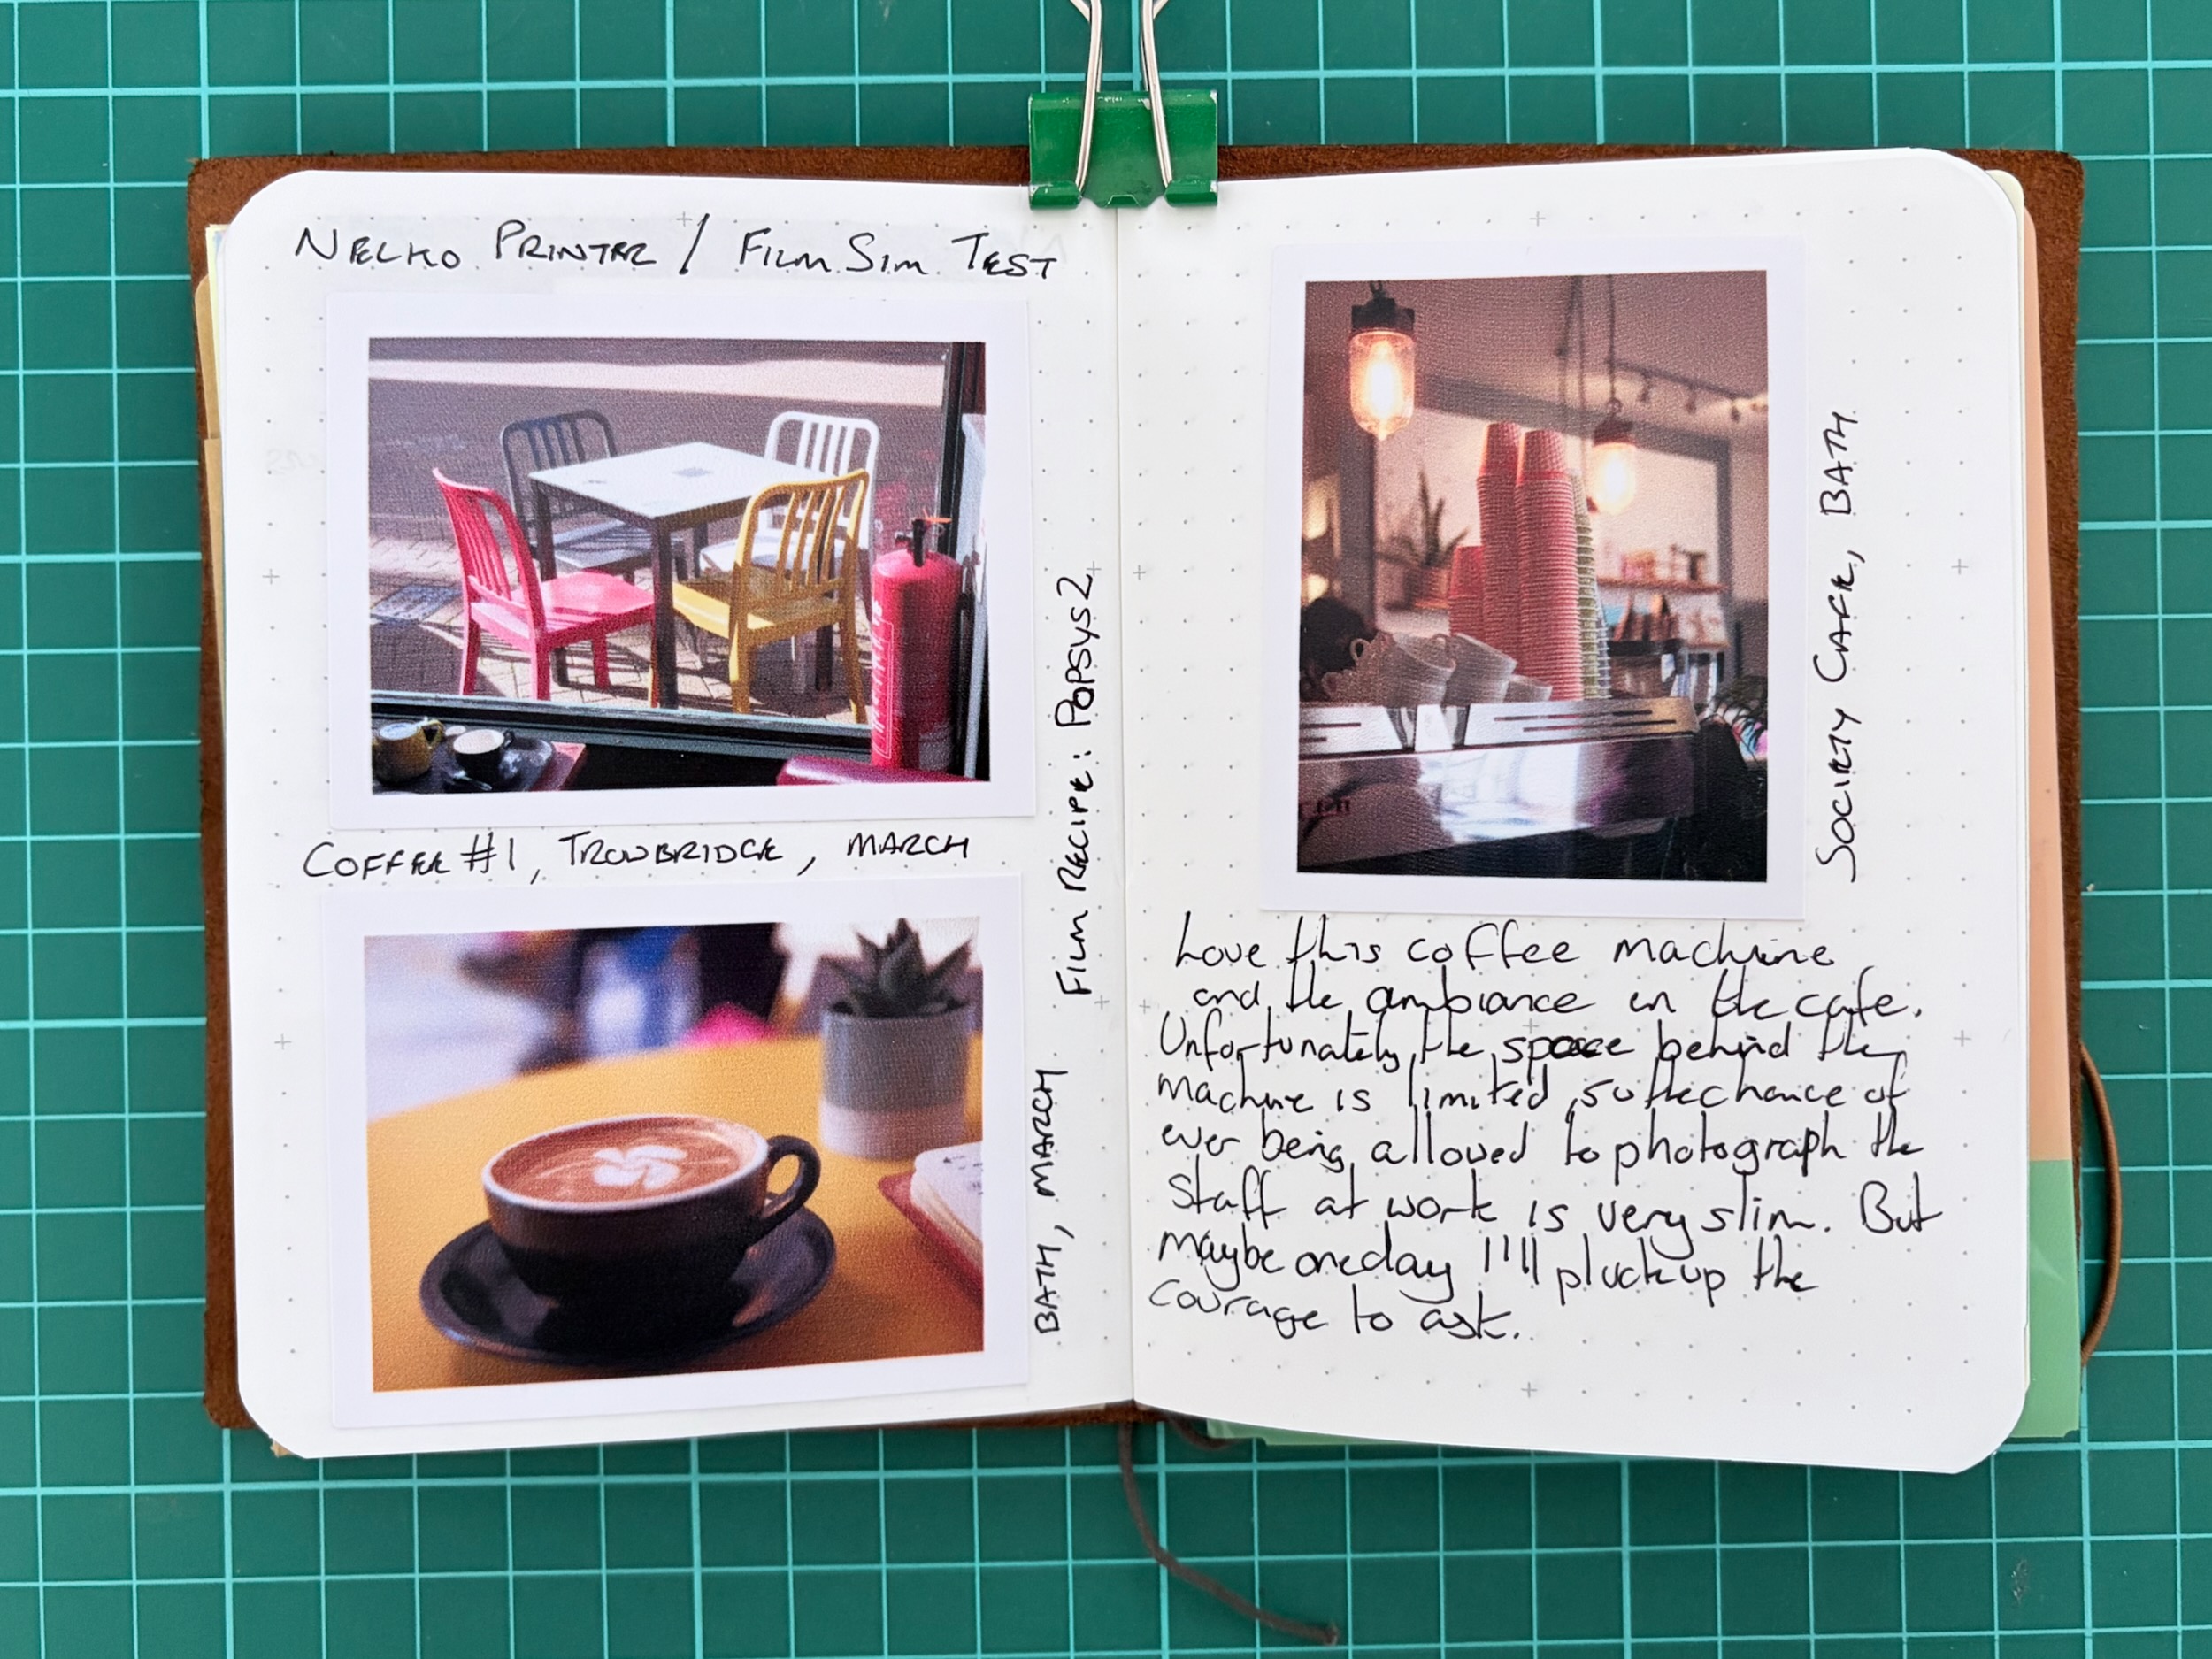 NELKO PRINTER / FILM SIM TEST
COFFEE #1, TROWBRIDGE, MARCH
FILM RECIPE: POPSYS2
BATH, MARCH
SOCIETY CAFE, BATH
Love this coffee machine
and the ambiance in the cafe.
Unfortunately the space behind the
machine is limited, so the chance of
ever being allowed to photograph the
staff at work is very slim. But
maybe one day I'll pluck up the
courage to ask.